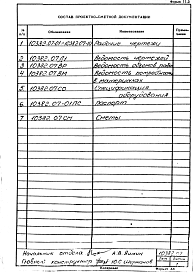 Форма 11.2
СОСТАВ ПРОЕКТНО-СМЕТНОЙ ДОКУМЕНТАЦИИ
№ п/п Обозначение Наименование Приме-чание
1 10382.07.01÷10382.07. Рабочие чертежи
2 10382.07.01 Ведомость чертежей
3 10382.07.ВР Ведомость объемов работ
4 10382.07.ВМ Ведомость потребности
в материалах
5 10382.07.СО Спецификация
оборудования
6 10382.07-01ПС Паспорта
7 10382.07.СМ Сметы
Начальник отдела А.В.
Главный конструктор Ю.С.
10382.07